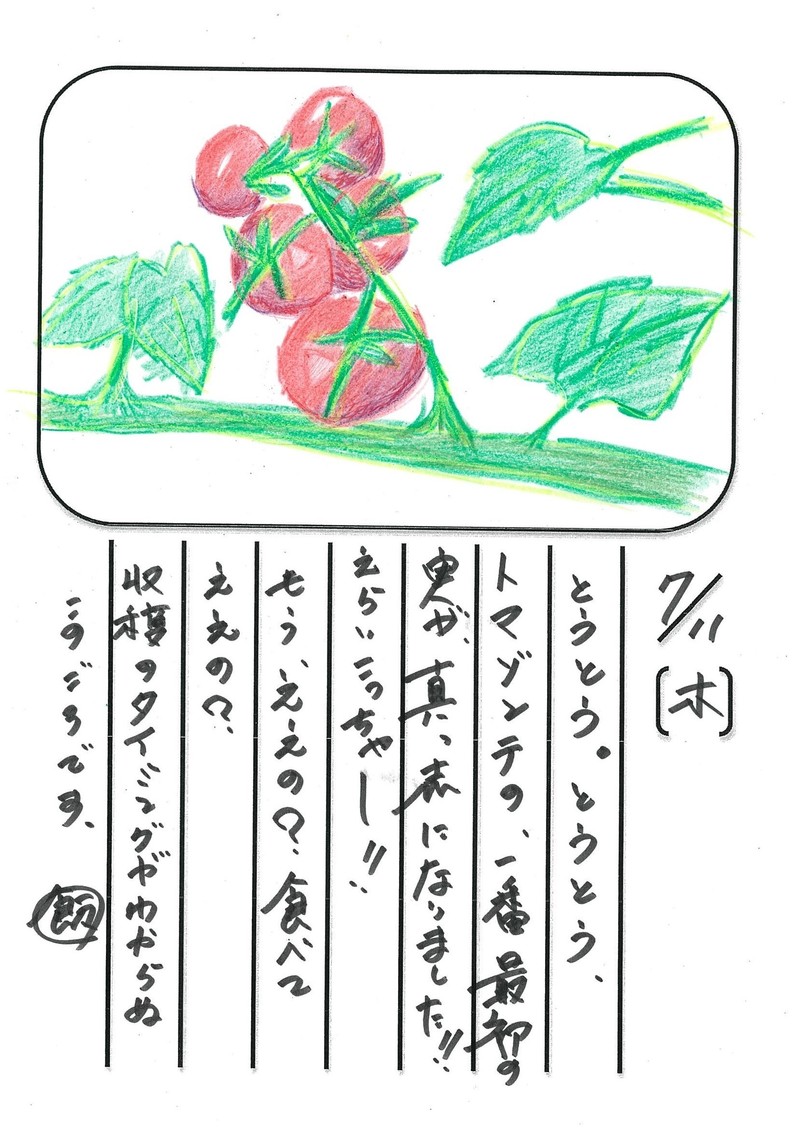 7/11〔木〕
とうとう。とうとう、
トマゾンテの、一番最初の
実が、真っ赤になりました!!
えらいこっちゃー!!
もう、ええの?食べて
ええの?
収穫のタイミングがわからぬ
このごろです。 飯